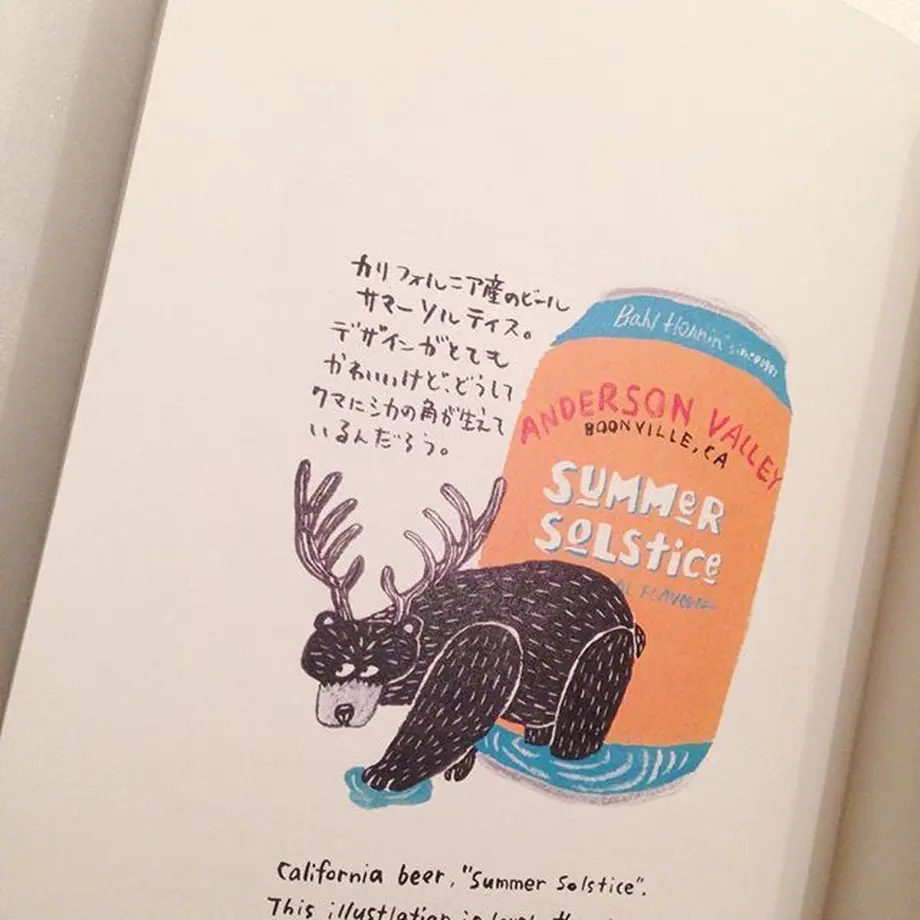 カリフォルニア産のビール
サマーソルティス。
デザインがとても
かわいいけど、どうして
クマにシカの角が生えて
いるんだろう。
Bahl Hornin' since 1987
ANDERSON VALLEY
BOONVILLE, CA
SUMMER
SOLSTICE
FLAVORS
California beer, "Summer Solstice".
This illustlation is